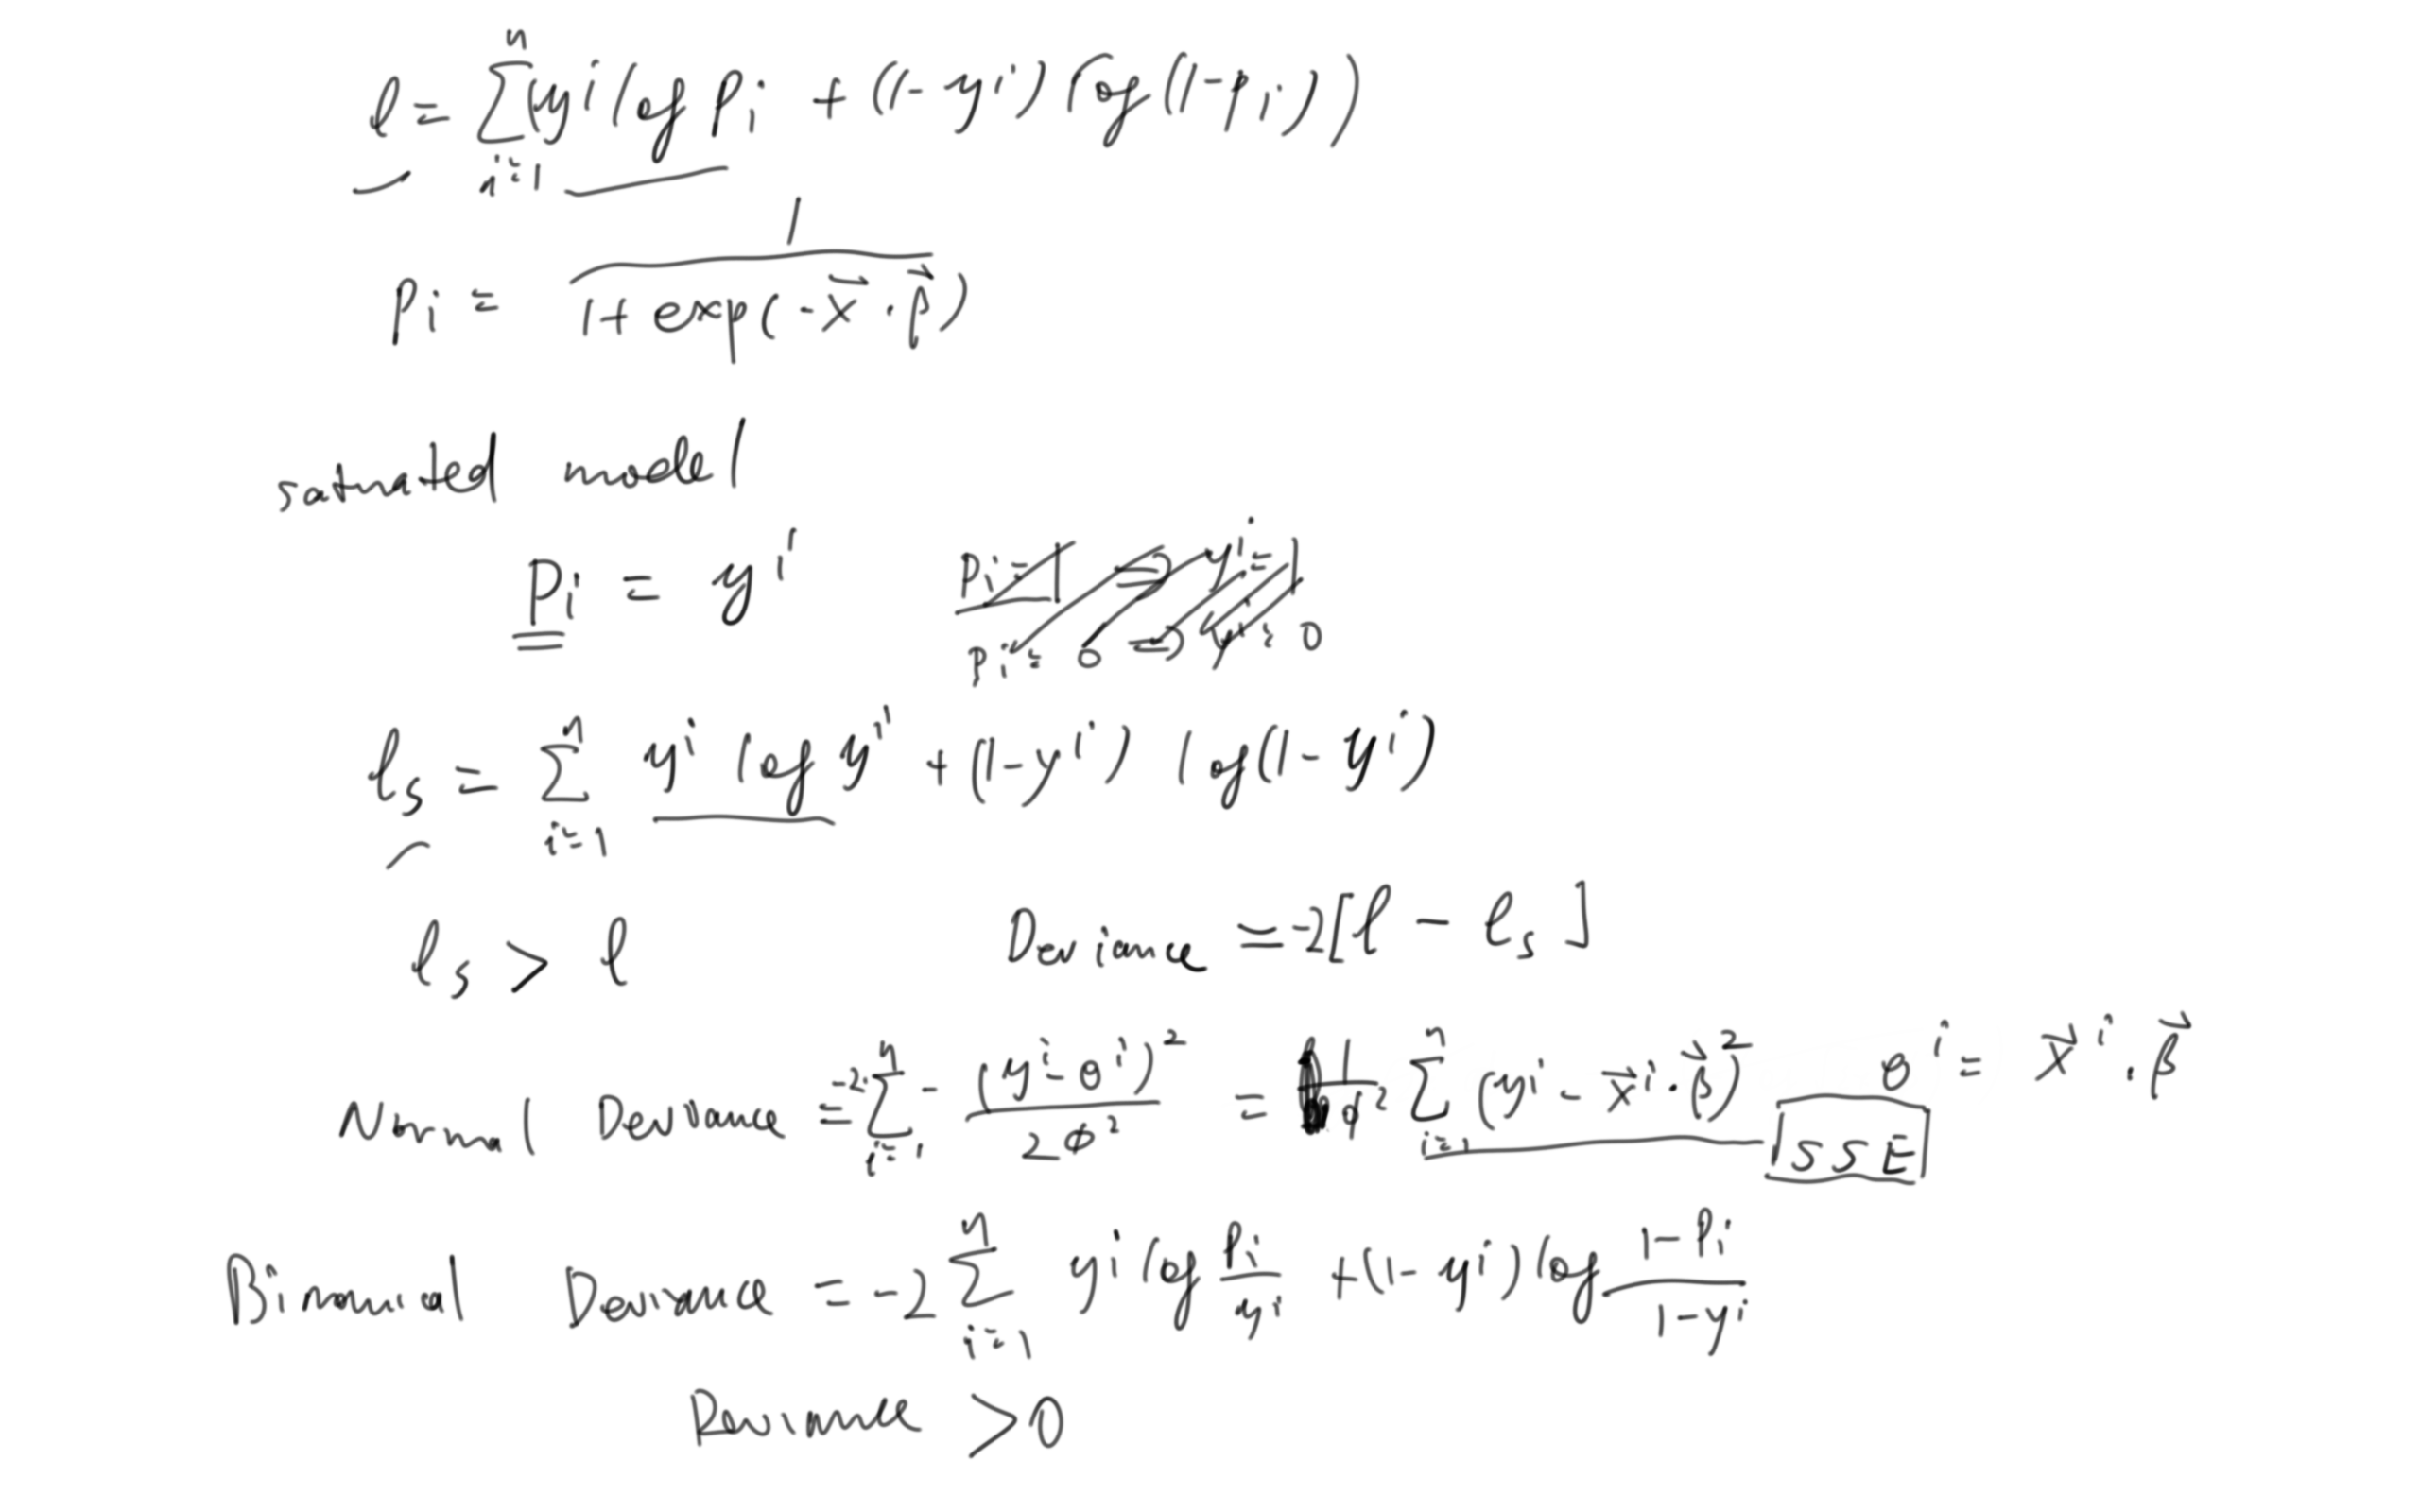 ℓ = ∑_{i=1}^{n} (y^i log p_i + (1 - y^i) log (1 - p_i))
p_i = 1 / (1 + exp(-x⃗ · β⃗))
saturated model
p_i = y^i p_i = 1 ⇒ y^i = 1
p_i = 0 ⇒ y^i = 0
ℓ_s = ∑_{i=1}^{n} y^i log y^i + (1 - y^i) log (1 - y^i)
ℓ_s > ℓ Deviance = -2[ℓ - ℓ_s]
Normal Deviance = -2 · ∑_{i=1}^{n} - (y^i - θ^i)^2 / 2φ^2 = 1/φ^2 ∑_{i=1}^{n} (y^i - x⃗^i · β⃗)^2 θ^i = x⃗^i · β⃗
SSE
Binomial Deviance = -2 ∑_{i=1}^{n} y^i log p_i / y^i + (1 - y^i) log (1 - p_i) / (1 - y^i)
Deviance > 0